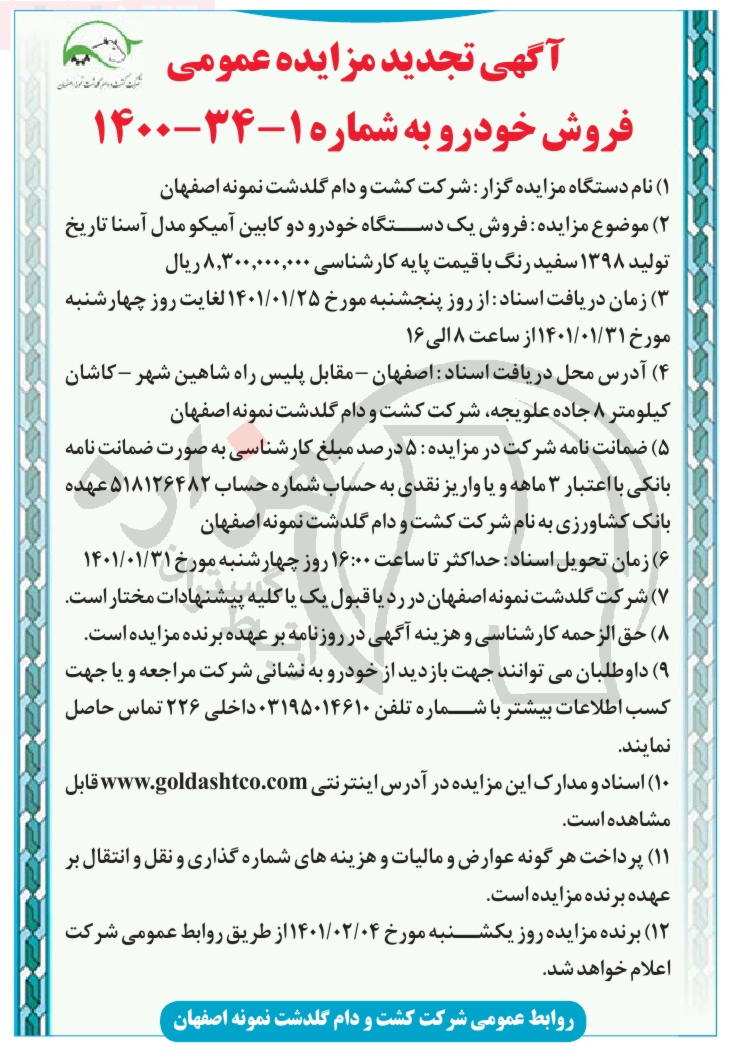 شرکت کشت و دام گلدشت نمونه اصفهان
آگهی تجدید مزایده عمومی
فروش خودرو به شماره ۱-۳۴-۱۴۰۰
۱) نام دستگاه مزایده گزار : شرکت کشت و دام گلدشت نمونه اصفهان
۲) موضوع مزایده : فروش یک دستگاه خودرو دو کابین آمیکو مدل آسنا تاریخ
تولید ۱۳۹۸ سفید رنگ با قیمت پایه کارشناسی ۸,۳۰۰,۰۰۰,۰۰۰ ریال
۳) زمان دریافت اسناد : از روز پنجشنبه مورخ ۱۴۰۱/۰۱/۲۵ لغایت روز چهارشنبه
مورخ ۱۴۰۱/۰۱/۳۱ از ساعت ۸ الی ۱۶
۴) آدرس محل دریافت اسناد : اصفهان – مقابل پلیس راه شاهین شهر – کاشان
کیلومتر ۸ جاده علویجه، شرکت کشت و دام گلدشت نمونه اصفهان
۵) ضمانت نامه شرکت در مزایده : ۵ درصد مبلغ کارشناسی به صورت ضمانت نامه
بانکی با اعتبار ۳ ماهه و یا واریز نقدی به حساب شماره حساب ۵۱۸۱۲۶۴۸۲ عهده
بانک کشاورزی به نام شرکت کشت و دام گلدشت نمونه اصفهان
۶) زمان تحویل اسناد : حداکثر تا ساعت ۱۶:۰۰ روز چهارشنبه مورخ ۱۴۰۱/۰۱/۳۱
۷) شرکت گلدشت نمونه اصفهان در رد یا قبول یک یا کلیه پیشنهادات مختار است.
۸) حق الزحمه کارشناسی و هزینه آگهی در روزنامه بر عهده برنده مزایده است.
۹) داوطلبان می توانند جهت بازدید از خودرو به نشانی شرکت مراجعه و یا جهت
کسب اطلاعات بیشتر با شماره تلفن ۰۳۱۹۵۰۱۴۶۱۰ داخلی ۲۲۶ تماس حاصل
نمایند.
۱۰) اسناد و مدارک این مزایده در آدرس اینترنتی www.goldashtco.com قابل
مشاهده است.
۱۱) پرداخت هر گونه عوارض و مالیات و هزینه های شماره گذاری و نقل و انتقال بر
عهده برنده مزایده است.
۱۲) برنده مزایده روز یکشنبه مورخ ۱۴۰۱/۰۲/۰۴ از طریق روابط عمومی شرکت
اعلام خواهد شد.
روابط عمومی شرکت کشت و دام گلدشت نمونه اصفهان
هزاره
گستران